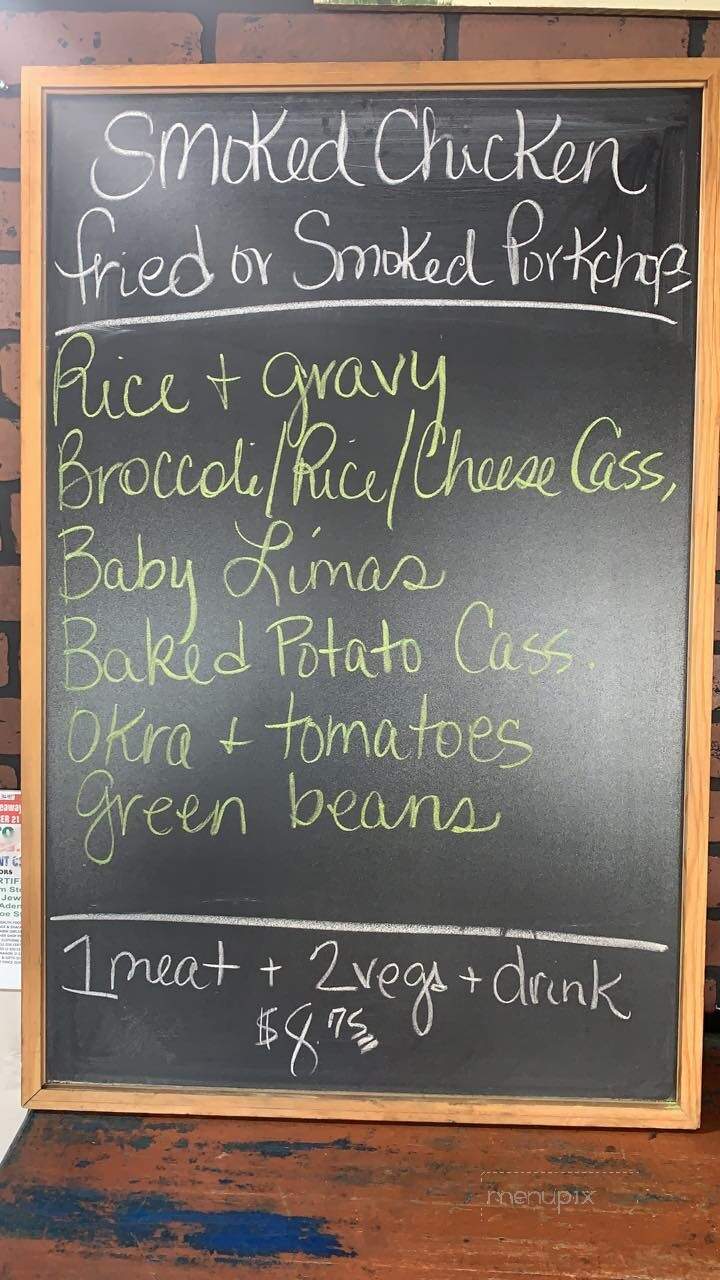 Smoked Chicken
fried or Smoked Porkchops
Rice + gravy
Broccoli/Rice/Cheese Cass,
Baby Limas
Baked Potato Cass.
Okra + tomatoes
green beans
1 meat + 2 vegs + drink
$8.75
menupix